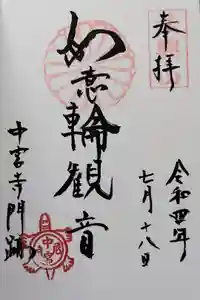 奉拝
令和四年
七月十八日
如意輪観音
中宮寺門跡
中宮寺